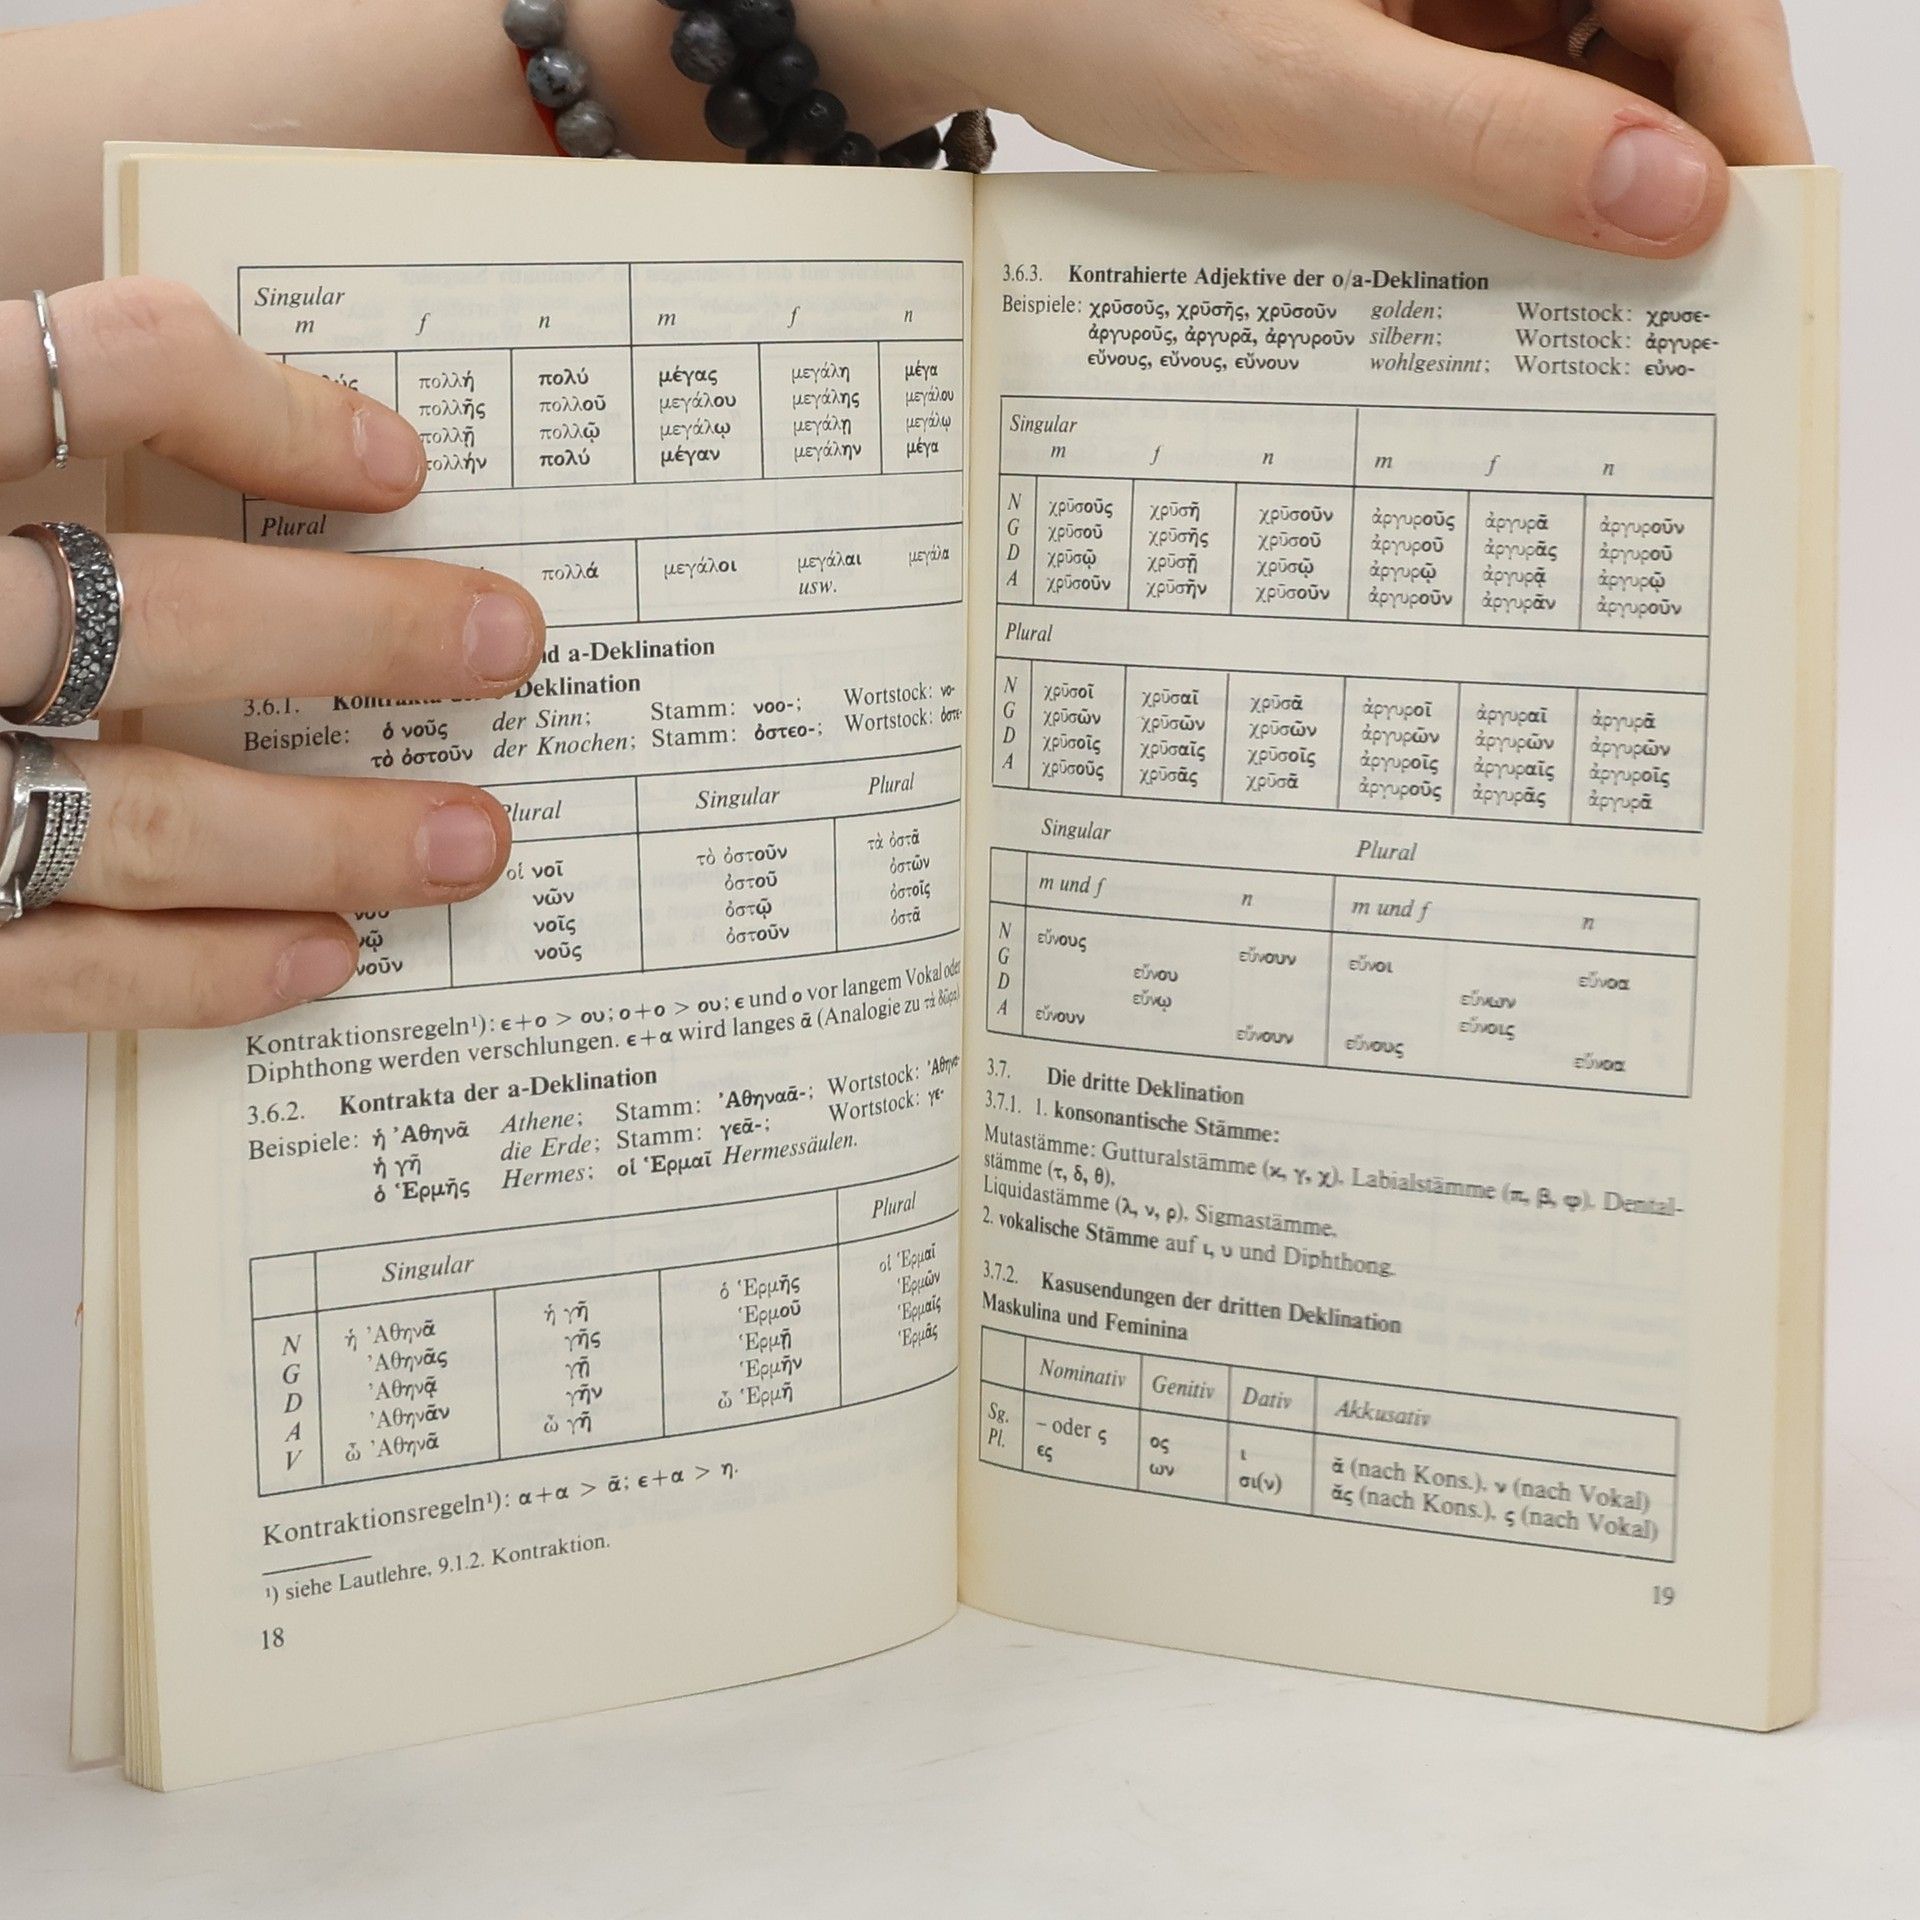 Singular
m f n m f n
πολλή πολύ μέγας μεγάλη μέγα
πολλῆς πολλοῦ μεγάλου μεγάλης μεγάλου
πολλῇ πολλῷ μεγάλῳ μεγάλῃ μεγάλῳ
πολλήν πολύ μέγαν μεγάλην μέγα
Plural
πολλά μεγάλοι μεγάλαι μεγάλα
usw.
a-Deklination
3.6.1. Deklination
Beispiele: ὁ νοῦς der Sinn; Stamm: νοο-; Wortstock: νο-
τὸ ὀστοῦν der Knochen; Stamm: ὀστεο-; Wortstock: ὀστε-
Plural Singular Plural
οἱ νοῖ τὸ ὀστοῦν τὰ ὀστᾶ
νῶν ὀστοῦ ὀστῶν
νῷ νοῖς ὀστῷ ὀστοῖς
νοῦν νοῦς ὀστοῦν ὀστᾶ
Kontraktionsregeln¹): ε+ο > ου; ο+ο > ου; ε und ο vor langem Vokal oder
Diphthong werden verschlungen. ε+α wird langes ᾱ (Analogie zu τὰ δῶρα).
3.6.2. Kontrakta der a-Deklination
Beispiele: ἡ Ἀθηνᾶ Athene; Stamm: Ἀθηναᾱ-; Wortstock: Ἀθηνα-
ἡ γῆ die Erde; Stamm: γεᾱ-; Wortstock: γε-
ὁ Ἑρμῆς Hermes; οἱ Ἑρμαῖ Hermessäulen.
Singular Plural
N ἡ Ἀθηνᾶ ἡ γῆ ὁ Ἑρμῆς οἱ Ἑρμαῖ
G Ἀθηνᾶς γῆς Ἑρμοῦ Ἑρμῶν
D Ἀθηνᾷ γῇ Ἑρμῇ Ἑρμαῖς
A Ἀθηνᾶν γῆν Ἑρμῆν Ἑρμᾶς
V ὦ Ἀθηνᾶ ὦ γῆ ὦ Ἑρμῆ
Kontraktionsregeln¹): α+α > ᾱ; ε+α > η.
¹) siehe Lautlehre, 9.1.2. Kontraktion.
18
3.6.3. Kontrahierte Adjektive der o/a-Deklination
Beispiele: χρῡσοῦς, χρῡσῆς, χρῡσοῦν golden; Wortstock: χρυσε-
ἀργυροῦς, ἀργυρᾶ, ἀργυροῦν silbern; Wortstock: ἀργυρε-
εὔνους, εὔνους, εὔνουν wohlgesinnt; Wortstock: εὐνο-
Singular
m f n m f n
N χρῡσοῦς χρῡσῆ χρῡσοῦν ἀργυροῦς ἀργυρᾶ ἀργυροῦν
G χρῡσοῦ χρῡσῆς χρῡσοῦ ἀργυροῦ ἀργυρᾶς ἀργυροῦ
D χρῡσῷ χρῡσῇ χρῡσῷ ἀργυρῷ ἀργυρᾷ ἀργυρῷ
A χρῡσοῦν χρῡσῆν χρῡσοῦν ἀργυροῦν ἀργυρᾶν ἀργυροῦν
Plural
N χρῡσοῖ χρῡσαῖ χρῡσᾶ ἀργυροῖ ἀργυραῖ ἀργυρᾶ
G χρῡσῶν χρῡσῶν χρῡσῶν ἀργυρῶν ἀργυρῶν ἀργυρῶν
D χρῡσοῖς χρῡσαῖς χρῡσοῖς ἀργυροῖς ἀργυραῖς ἀργυροῖς
A χρῡσοῦς χρῡσᾶς χρῡσᾶ ἀργυροῦς ἀργυρᾶς ἀργυρᾶ
Singular Plural
m und f n m und f n
N εὔνους εὔνουν εὔνοι εὔνοα
G εὔνου εὔνων
D εὔνῳ εὔνοις
A εὔνουν εὔνουν εὔνους εὔνοα
3.7. Die dritte Deklination
3.7.1. 1. konsonantische Stämme:
Mutastämme: Gutturalstämme (κ, γ, χ), Labialstämme (π, β, φ), Dental-
stämme (τ, δ, θ),
Liquidastämme (λ, ν, ρ), Sigmastämme,
2. vokalische Stämme auf ι, υ und Diphthong.
3.7.2. Kasusendungen der dritten Deklination
Maskulina und Feminina
Nominativ Genitiv Dativ Akkusativ
Sg. – oder ς ος ι ᾰ (nach Kons.), ν (nach Vokal)
Pl. ες ων σι(ν) ᾰς (nach Kons.), ς (nach Vokal)
19